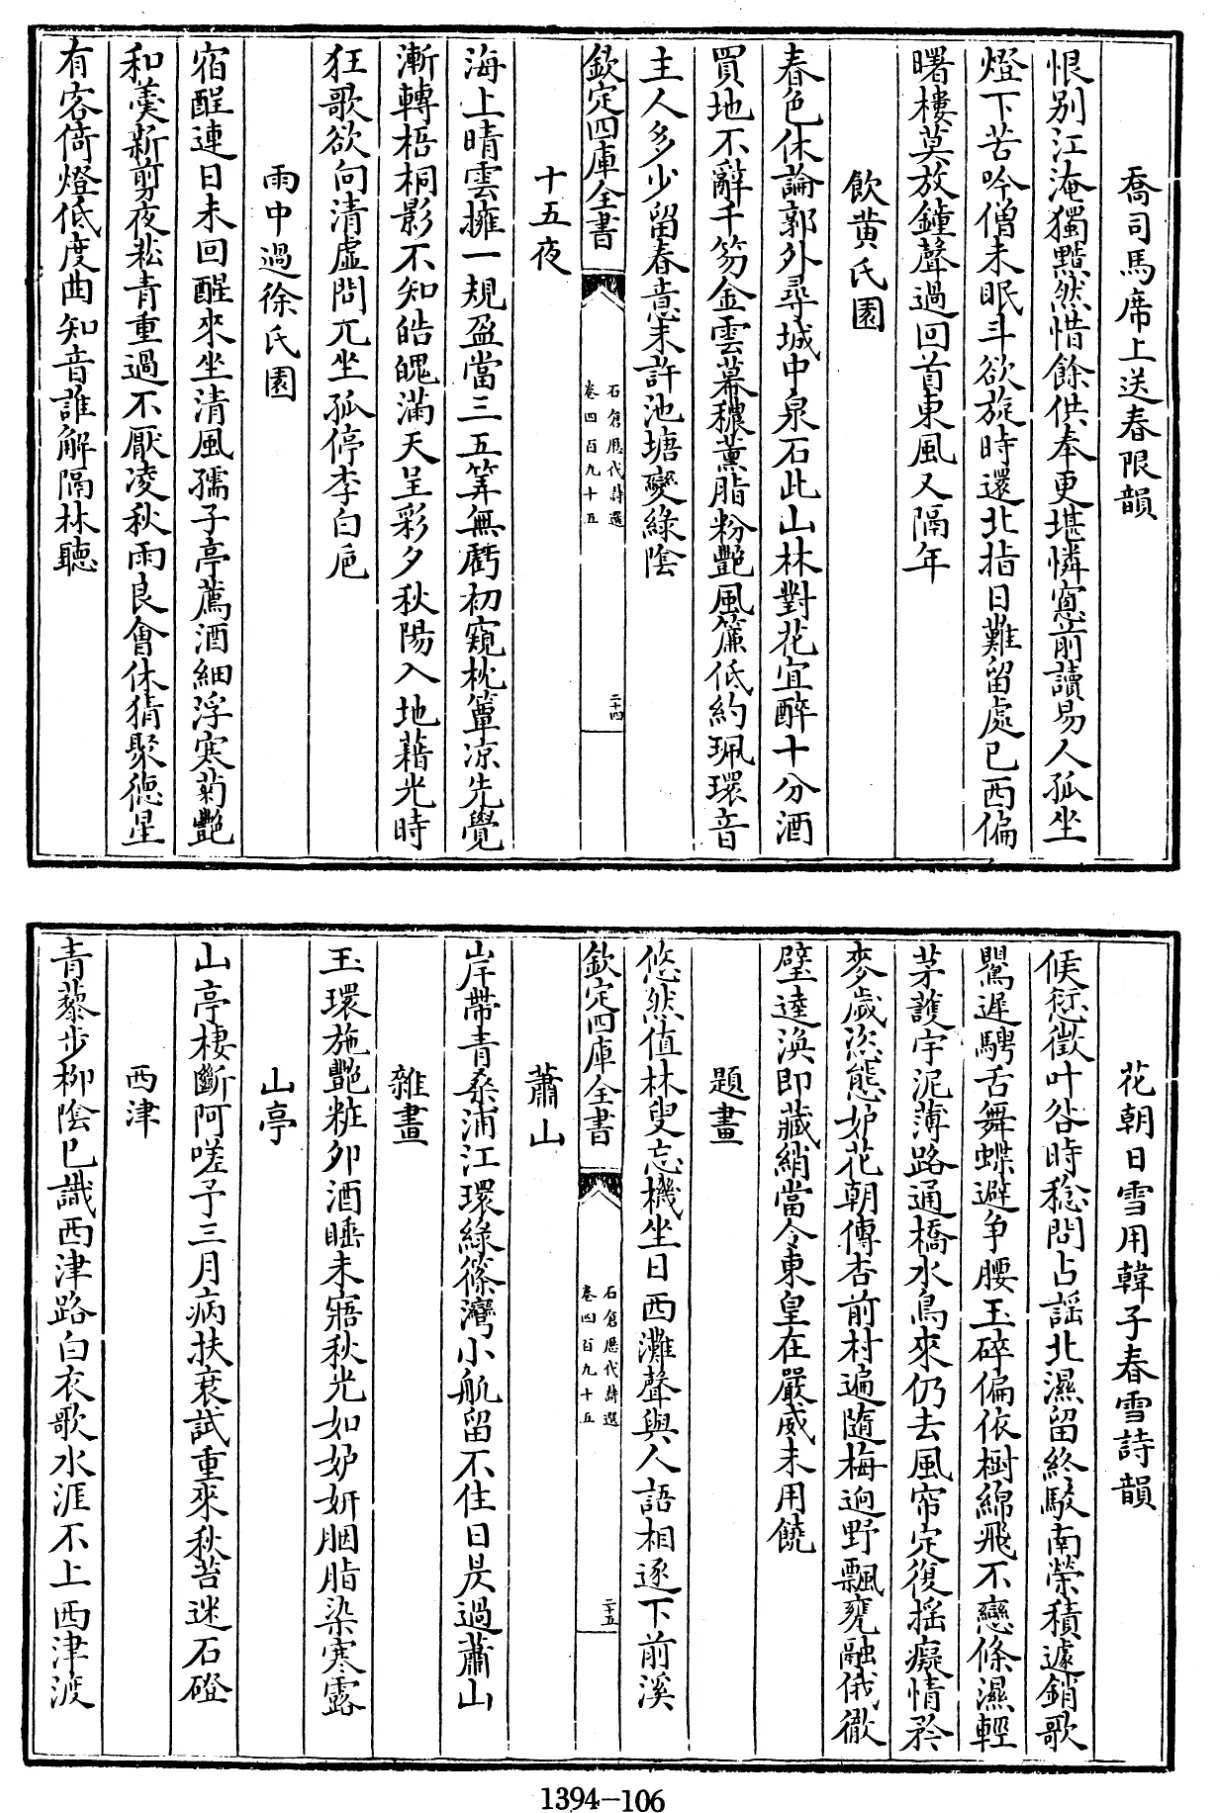 喬司馬席上送春限韻
恨别江淹獨黯然惜餘供奉更堪憐窻前讀易人孤坐
燈下苦吟僧未眠斗欲旋時還北指日難留處已西偏
曙樓莫放鐘聲過回首東風又隔年
飲黄氏園
春色休論郭外尋城中泉石此山林對花宜醉十分酒
買地不辭千笏金雲幕穠薰脂粉艷風簾低約珮環音
主人多少留春意未許池塘變綠陰
欽定四庫全書
石倉歷代詩選
卷四百九十五
二十四
十五夜
海上晴雲擁一規盈當三五筭無虧初窺枕簟凉先覺
漸轉梧桐影不知皓魄滿天呈彩夕秋陽入地藉光時
狂歌欲向清虛問兀坐孤停李白巵
雨中過徐氏園
宿酲連日未回醒來坐清風孺子亭薦酒細浮寒菊艷
和羮新剪夜菘青重過不厭凌秋雨良會休猜聚德星
有客倚燈低度曲知音誰解隔林聽
花朝日雪用韓子春雪詩韻
候愆徴叶咎時稔問占謡北濕留終駁南榮積遽銷歌
鸎遲騁舌舞蝶避争腰玉碎偏依樹綿飛不戀條濕輕
茅護宇泥薄路通橋水鳥來仍去風帘定復摇癡情矜
麥歲恣態妒花朝傳杏前村遍隨梅逈野飄甕融俄徹
璧達渙即藏綃當令東皇在嚴威未用饒
題畫
悠然值林叟忘機坐日西灘聲與人語相逐下前溪
欽定四庫全書
石倉歷代詩選
卷四百九十五
二十五
蕭山
岸帶青桑浦江環綠篠灣小航留不住日昃過蕭山
雜畫
玉環施艷粧夘酒睡未寤秋光如妒妍胭脂染寒露
山亭
山亭棲斷阿嗟予三月病扶衰試重來秋苔迷石磴
西津
青藜步柳陰已識西津路白衣歌水涯不上西津渡
1394-106